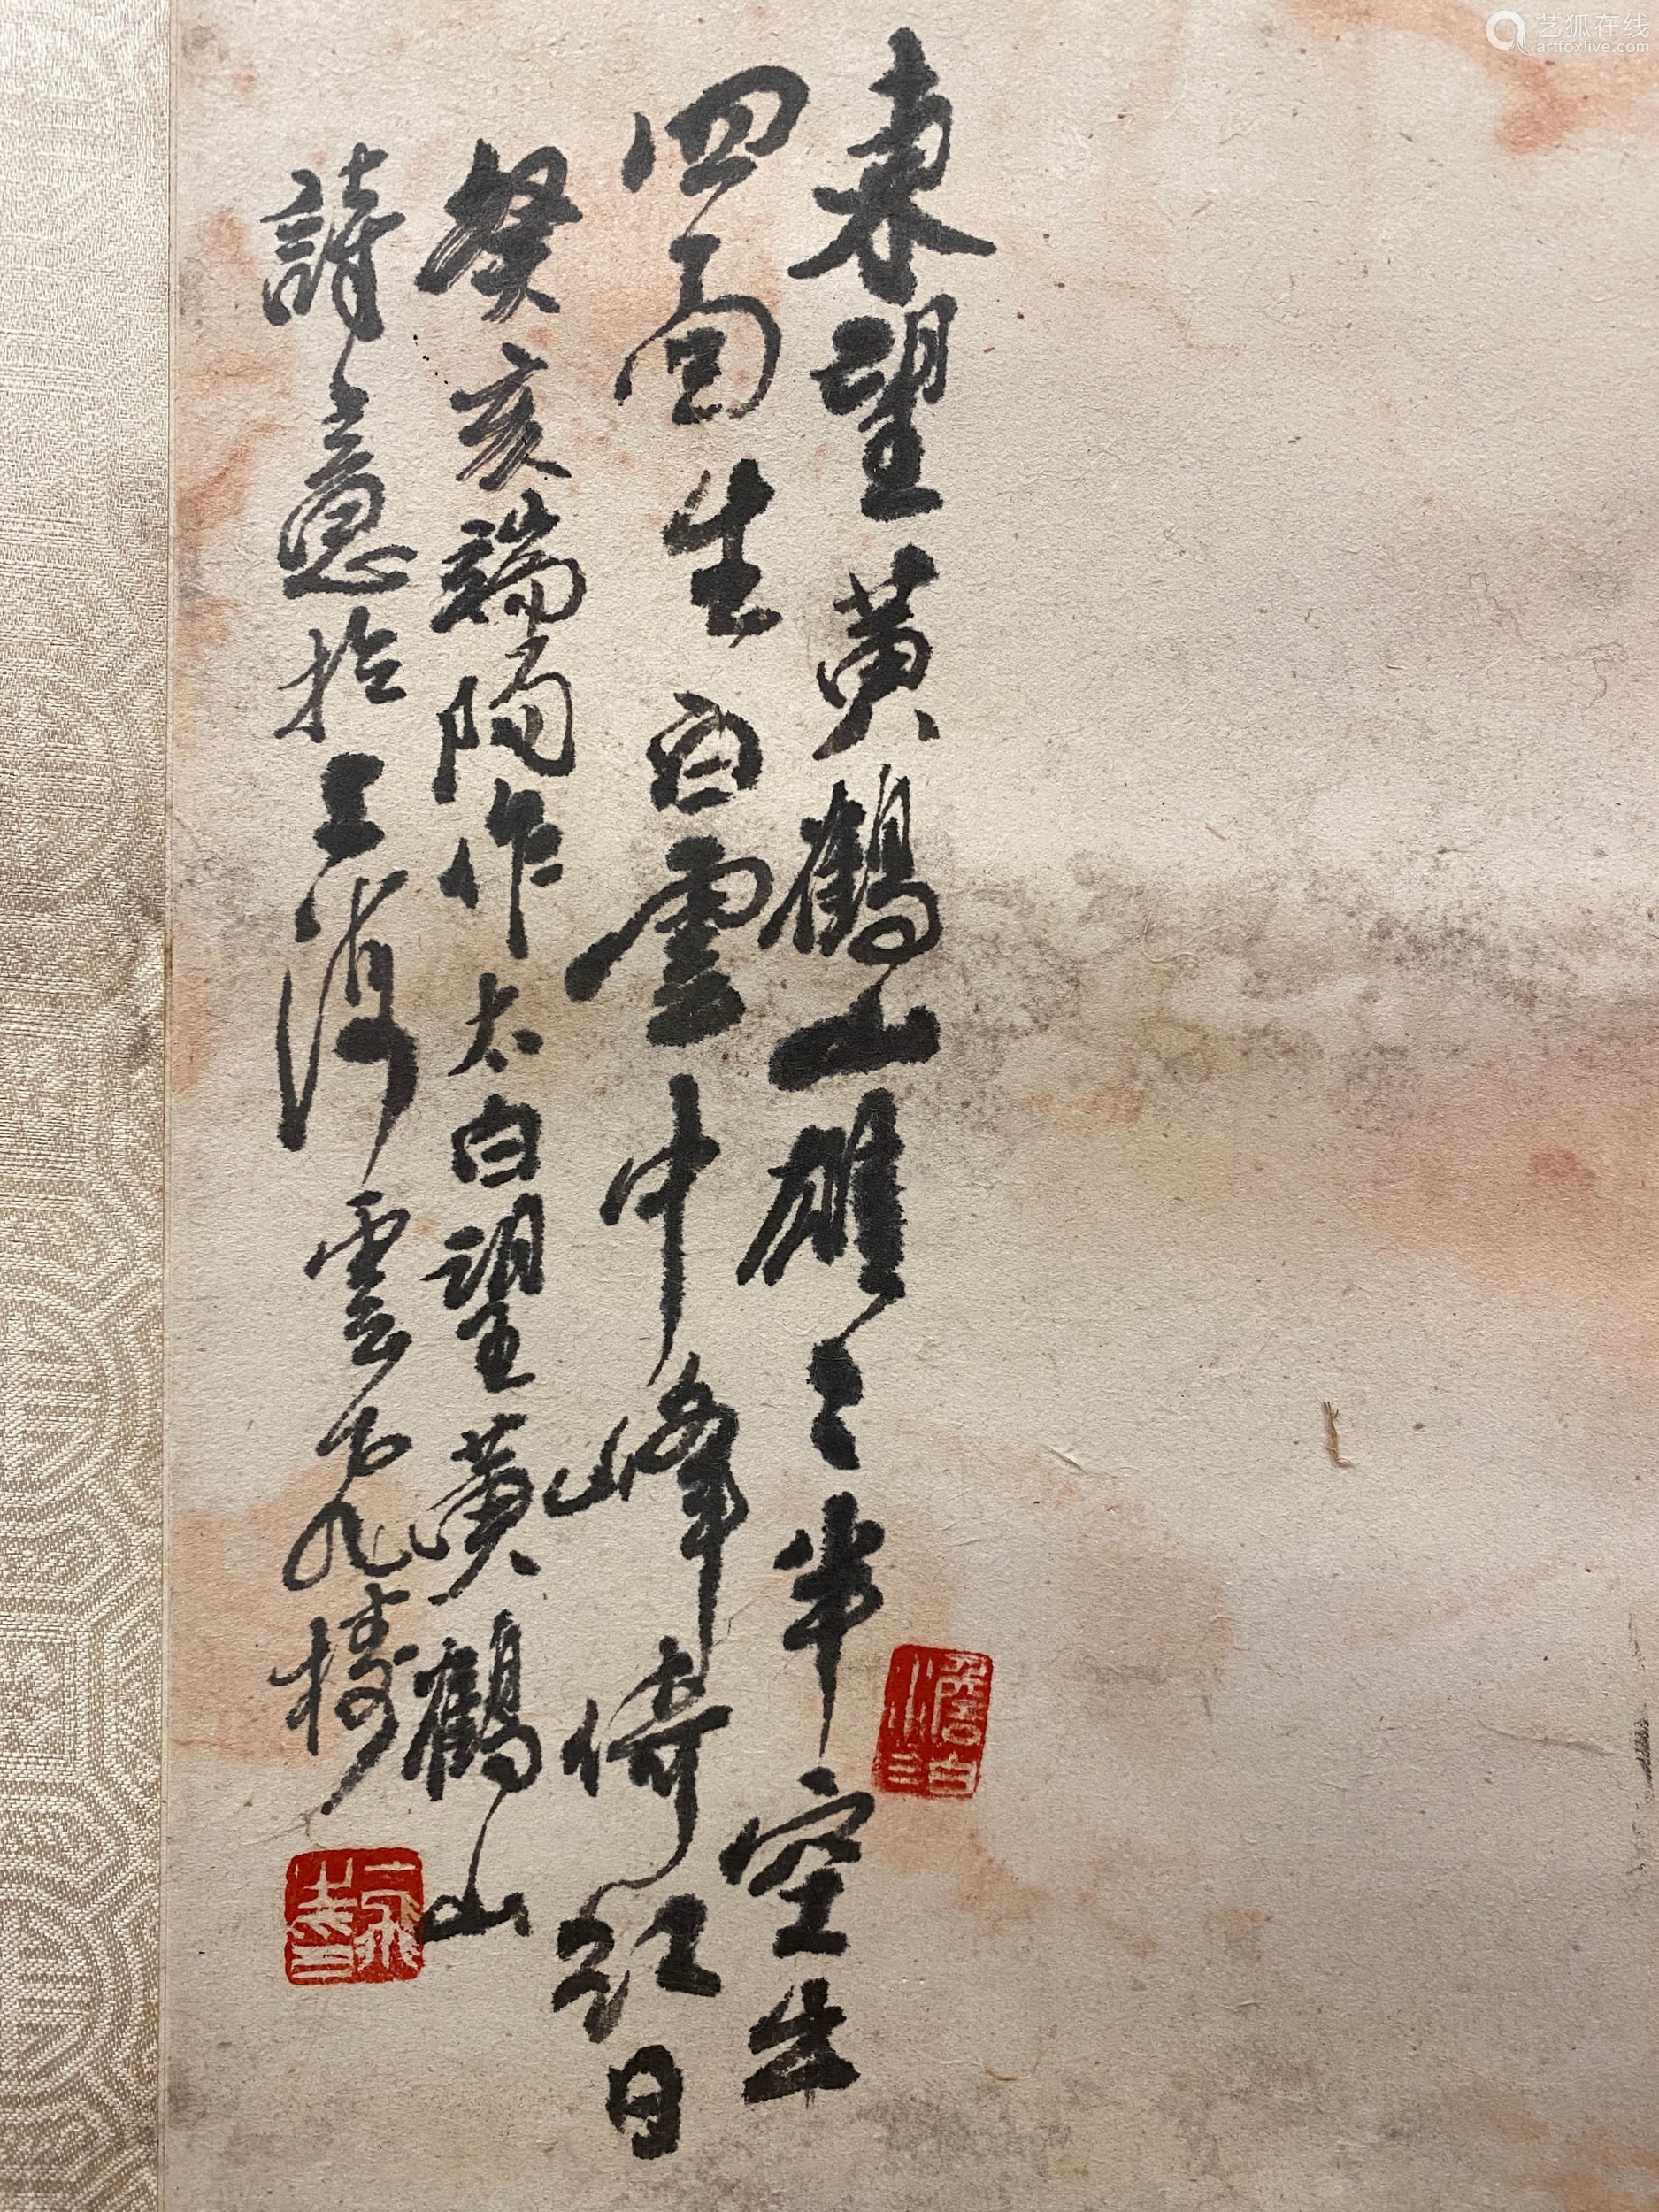 東望黄鶴山雄雄半空出
四面生白雲中峰倚紅日
癸亥端陽作太白望黄鶴山
詩意於上海雲九樓
艺狐在线
artfoxlive.com